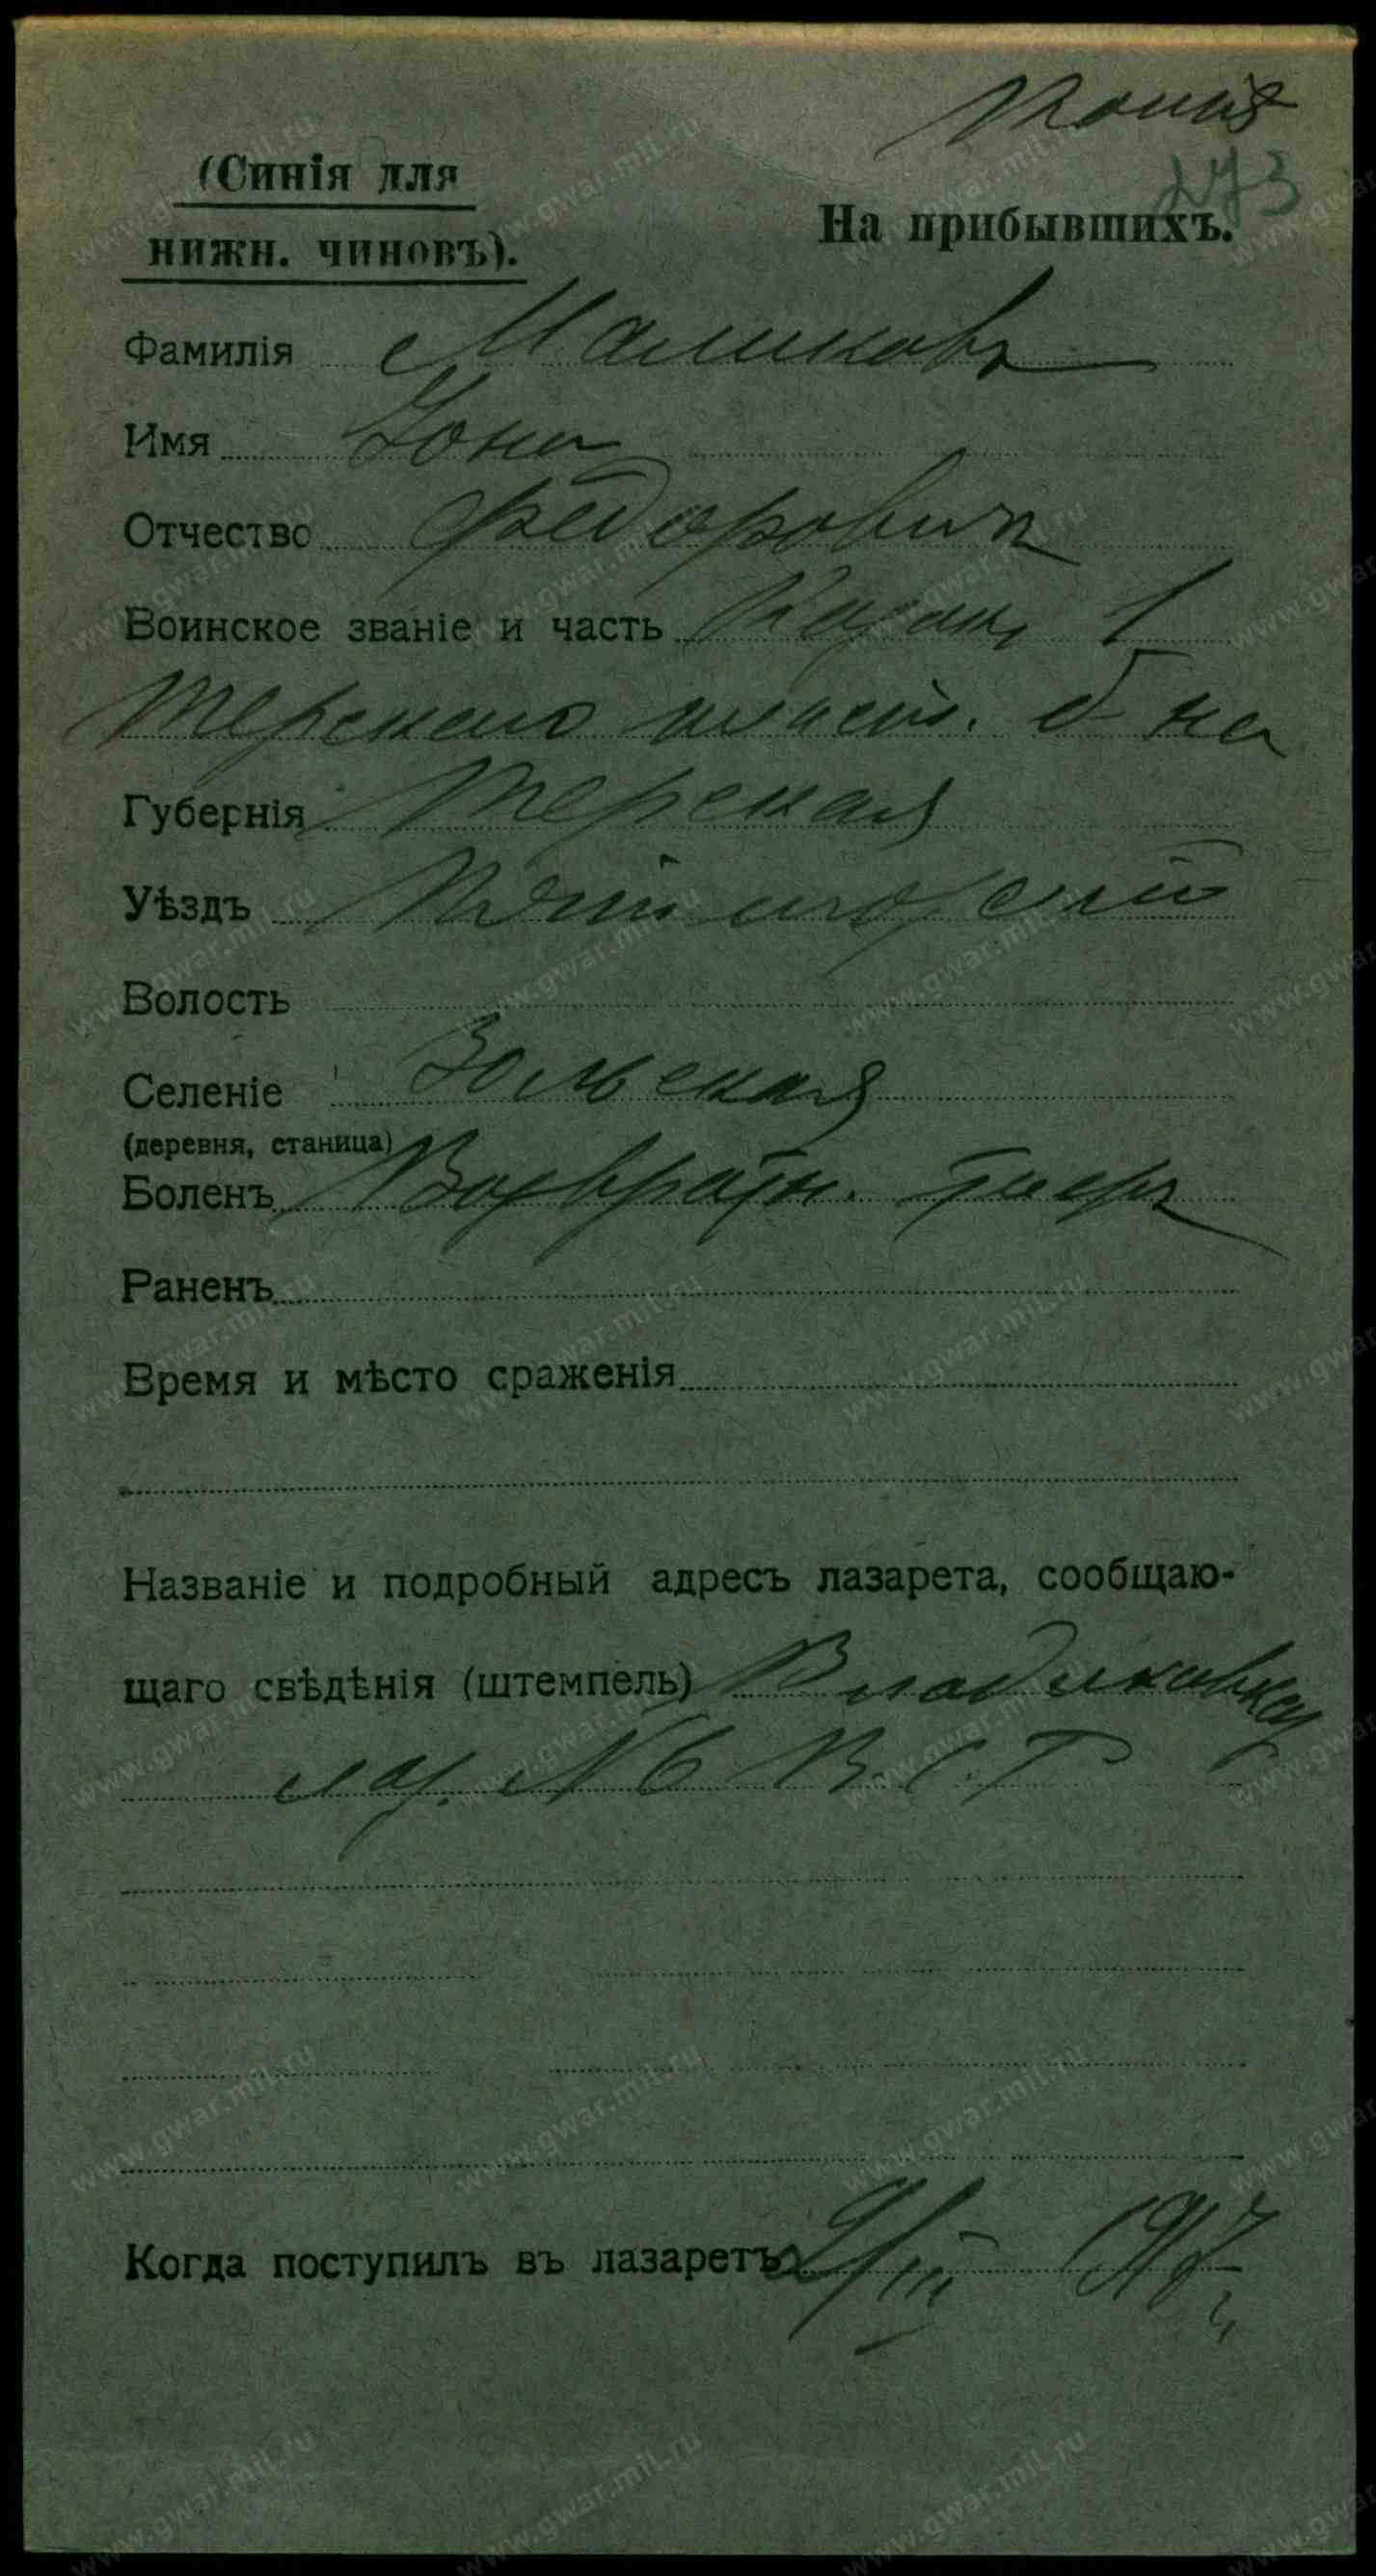 Копія
273
(Синія для
нижн. чиновъ).
На прибывшихъ.
Фамилія Машковъ
Имя Іона
Отчество Федоровичъ
Воинское званіе и часть Казакъ 1
Терскаго пласт. б-на
Губернія Терская
Уѣздъ Пятигорскій
Волость
Селеніе Зольская
(деревня, станица)
Боленъ Возвратн. тифъ
Раненъ
Время и мѣсто сраженія
Названіе и подробный адресъ лазарета, сообщаю-
щаго свѣдѣнія (штемпель) Владикавказ
лаз. №6 В.С.Г
Когда поступилъ въ лазаретъ 9/III 1917